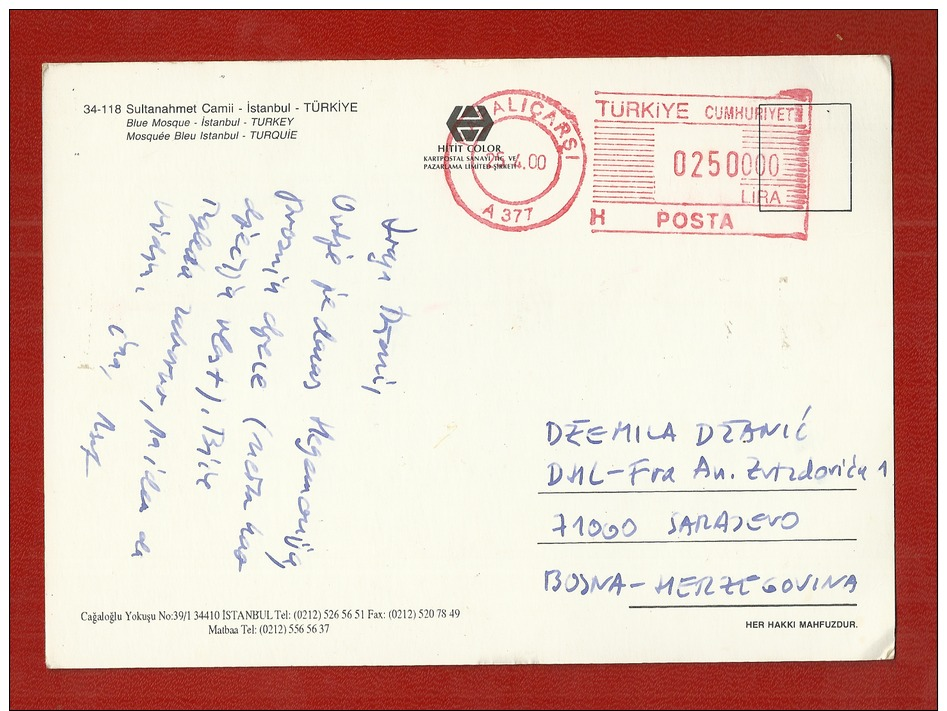 34-118 Sultanahmet Camii - İstanbul - TÜRKİYE
Blue Mosque - İstanbul - TURKEY
Mosquée Bleu Istanbul - TURQUİE
HİTİT COLOR
KARTPOSTAL SANAYİ TİC. VE
PAZARLAMA LİMİTED ŞİRKETİ
ALIÇARŞI
25.4.00
A 377
TÜRKİYE CUMHURİYETİ
0250000
LİRA
H POSTA
Draga Džemi,
Ovdje je danas
Praznik djece (nešto kao
dječija vlast). Biće
da
vidim.
DŽEMILA DŽANIĆ
DML-Fra An. Zvizdovića 1
71000 SARAJEVO
BOSNA-HERZEGOVINA
Cağaloğlu Yokuşu No:39/1 34410 İSTANBUL Tel: (0212) 526 56 51 Fax: (0212) 520 78 49
Matbaa Tel: (0212) 556 56 37
HER HAKKI MAHFUZDUR.